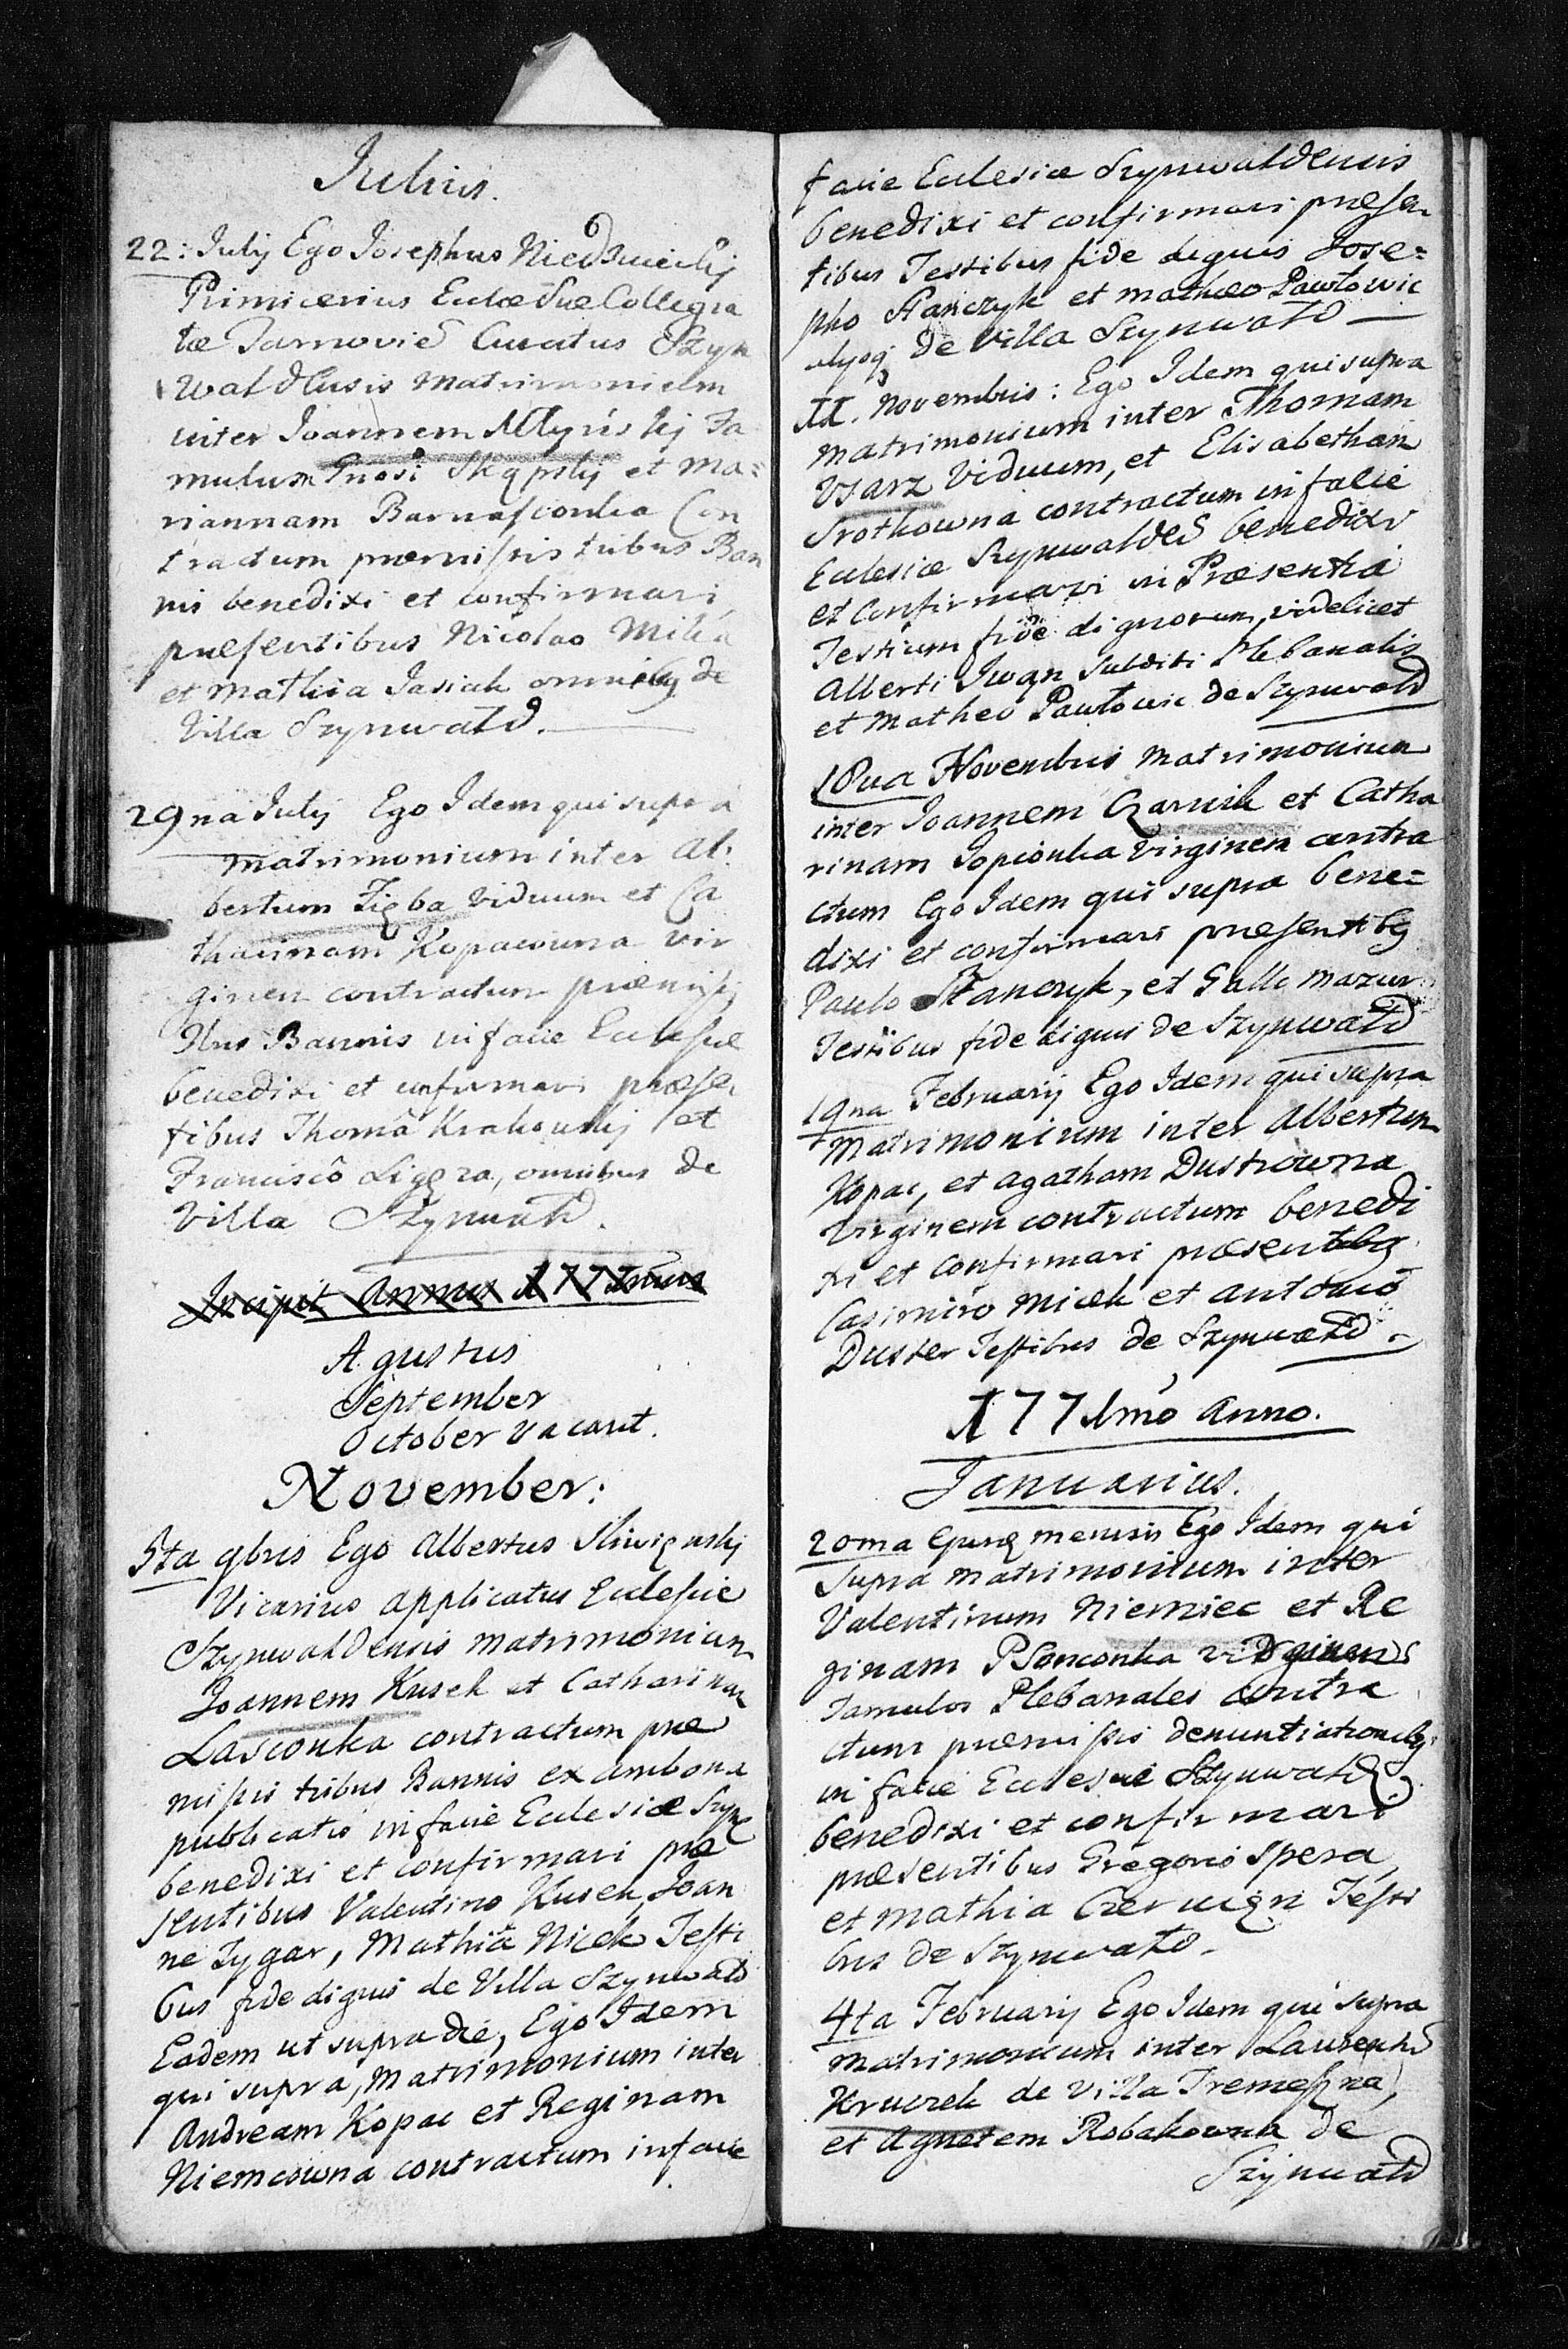 Julius.
22: July Ego Josephus Niedzwiecky
Primicerius Eccłae Suae Collegia
tæ Tarnovie Curatus Szyn
waldensis matrimonium
inter Joannem Młyńsky Fa
mulum Gnosi Skąpsky et Ma=
riannam Barnasionka Con
tractum præmissis tribus Ban
nis benedixi et confirmavi
præsentibus Nicolao Mika
et Mathia Jasiak omnibq de
Villa Szynwałd.
29na July Ego Idem qui supra
Matrimonium inter Al:
bertum Zięba viduum et Ca
tharinam Kopacowna vir
ginem contractum præmissis
Bannis in facie Ecclesiæ
benedixi et confirmavi præsen
tibus Thomâ Krakowsky et
Franciscô Ligęza, omnibus de
Villa Szynwałd.
Incipit Annus 177
Agustus
September
October vacant.
November:
5ta 9bris Ego Albertus Sliwięnsky
Vicarius applicatus Ecclesiæ
Szynwaldensis matrimonium
Joannem Kusek et Catharinam
Lasionka contractum præ
missis tribus Bannis ex ambona
publicatis in facie Ecclesiæ Szyn
benedixi et confirmavi præ
sentibus Valentino Kusek, Joan
ne Zygar, Mathia Nicek Testi
bus fide dignis de Villa Szynwałd
Eadem ut supra die, Ego Idem
qui supra, Matrimonium inter
Andream Kopac et Reginam
Niemcowna contractum in facie
facie Ecclesiæ Szynwaldensis
benedixi et confirmavi præsen
tibus Testibus fide dignis Jose=
pho Stanczyk et matheo Pawłowic
de Villa Szynwałd
Novembris: Ego Idem qui supra
Matrimonium inter Thomam
Vsarz Viduum, et Elisabetham
Srothowna contractum in facie
Ecclesiæ Szynwaldes benedixi
et Confirmavi in Præsentia
Testium fide dignorum, videlicet
Alberti Iwąn Subditi Plebanalis
et Matheo Pawłowic de Szynwałd
18va Novembris Matrimonium
inter Joannem Czarnik et Catha
rinam Popionka Virginem contra
ctum Ego Idem qui supra bene=
dixi et confirmavi præsentbq
Paulo Stanczyk, et Gallo Mazur
Testibus fide dignis de Szynwałd
19na February Ego Idem qui supra
Matrimonium inter Albertum
Kopac, et Agatham Dustrowna
Virginem contractum benedi
xi et Confirmavi præsentibq
Casimiro Micek et Antonio
Duster Testibus de Szynwałd.
1771mo Anno.
Januarius.
20ma Ejusq mensis Ego Idem qui
Supra Matrimonium inter
Valentinum Niemiec et Re
ginam Psonconka Virginem
Famulos Plebanales contra
ctum præmissis denuntiationibq
in facie Ecclesiæ Szynwałd
benedixi et confirmavi
præsentibus Gregorio Spera
et Mathia Czerwięn Testi
bus de Szynwałd.
4ta February Ego Idem qui supra
Matrimonium inter Laurent
Kruczek de Villa Tremesna,
et Agnetem Robakowna de
Szynwałd